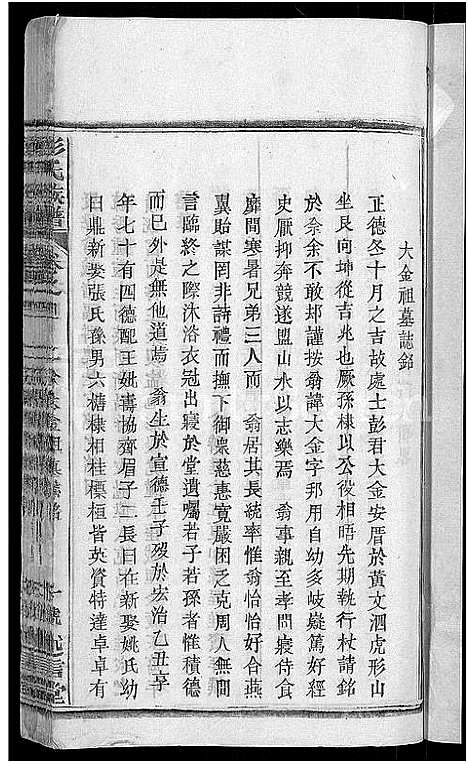 大金祖墓誌銘
正德冬十月之吉故處士彭君大金安厝於黃文泗虎形山
坐艮向坤從吉兆也厥孫棣以公役相晤先期執行杖請銘
於余余不敢卻謹按翁諱大金字邦用自幼多岐嶷篤好經
史厭抑奔競遂盟山水以志樂焉　翁事親至孝問寢侍食
靡間寒暑兄弟三人而　翁居其長統率惟翁怡怡好合燕
翼貽謀罔非詩禮而撫下御眾慈惠寬嚴困之克周人無間
言臨終之際沐浴衣冠出寢於堂遺囑若子若孫者惟積德
而已外是無他道焉　翁生於宣德壬子歿於宏治乙丑享
年七十有四德配王姚壽協齊眉子二長曰在新娶姚氏幼
曰鼎新娶張氏孫男六槽棣相桂標桓皆英資特達卓卓有
彭氏族譜